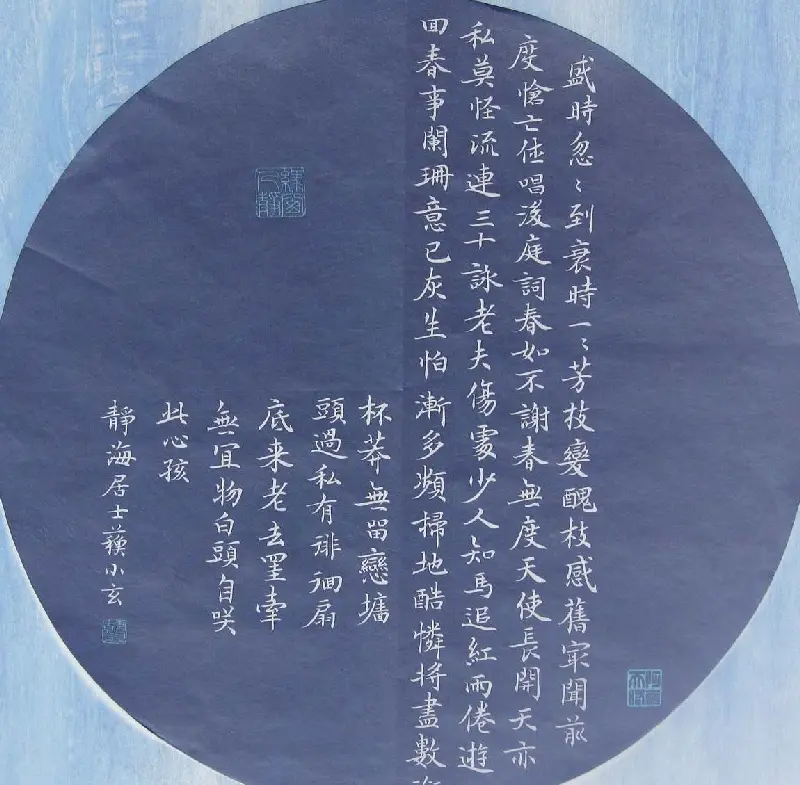 盛時忽〻到衰時一〻芳枝變醜枝感舊㝡聞前
度愴亡休唱後庭詞春如不謝春無度天使長開天亦
私莫怪流連三十詠老夫傷處少人知馬追紅雨倦遊
回春事闌珊意已灰生怕漸多頻掃地酷憐將盡數
杯莽無留戀墉
頭過私有徘徊扇
底来老去罣牽
無宜物白頭自咲
此心孩
靜海居士蘇小玄